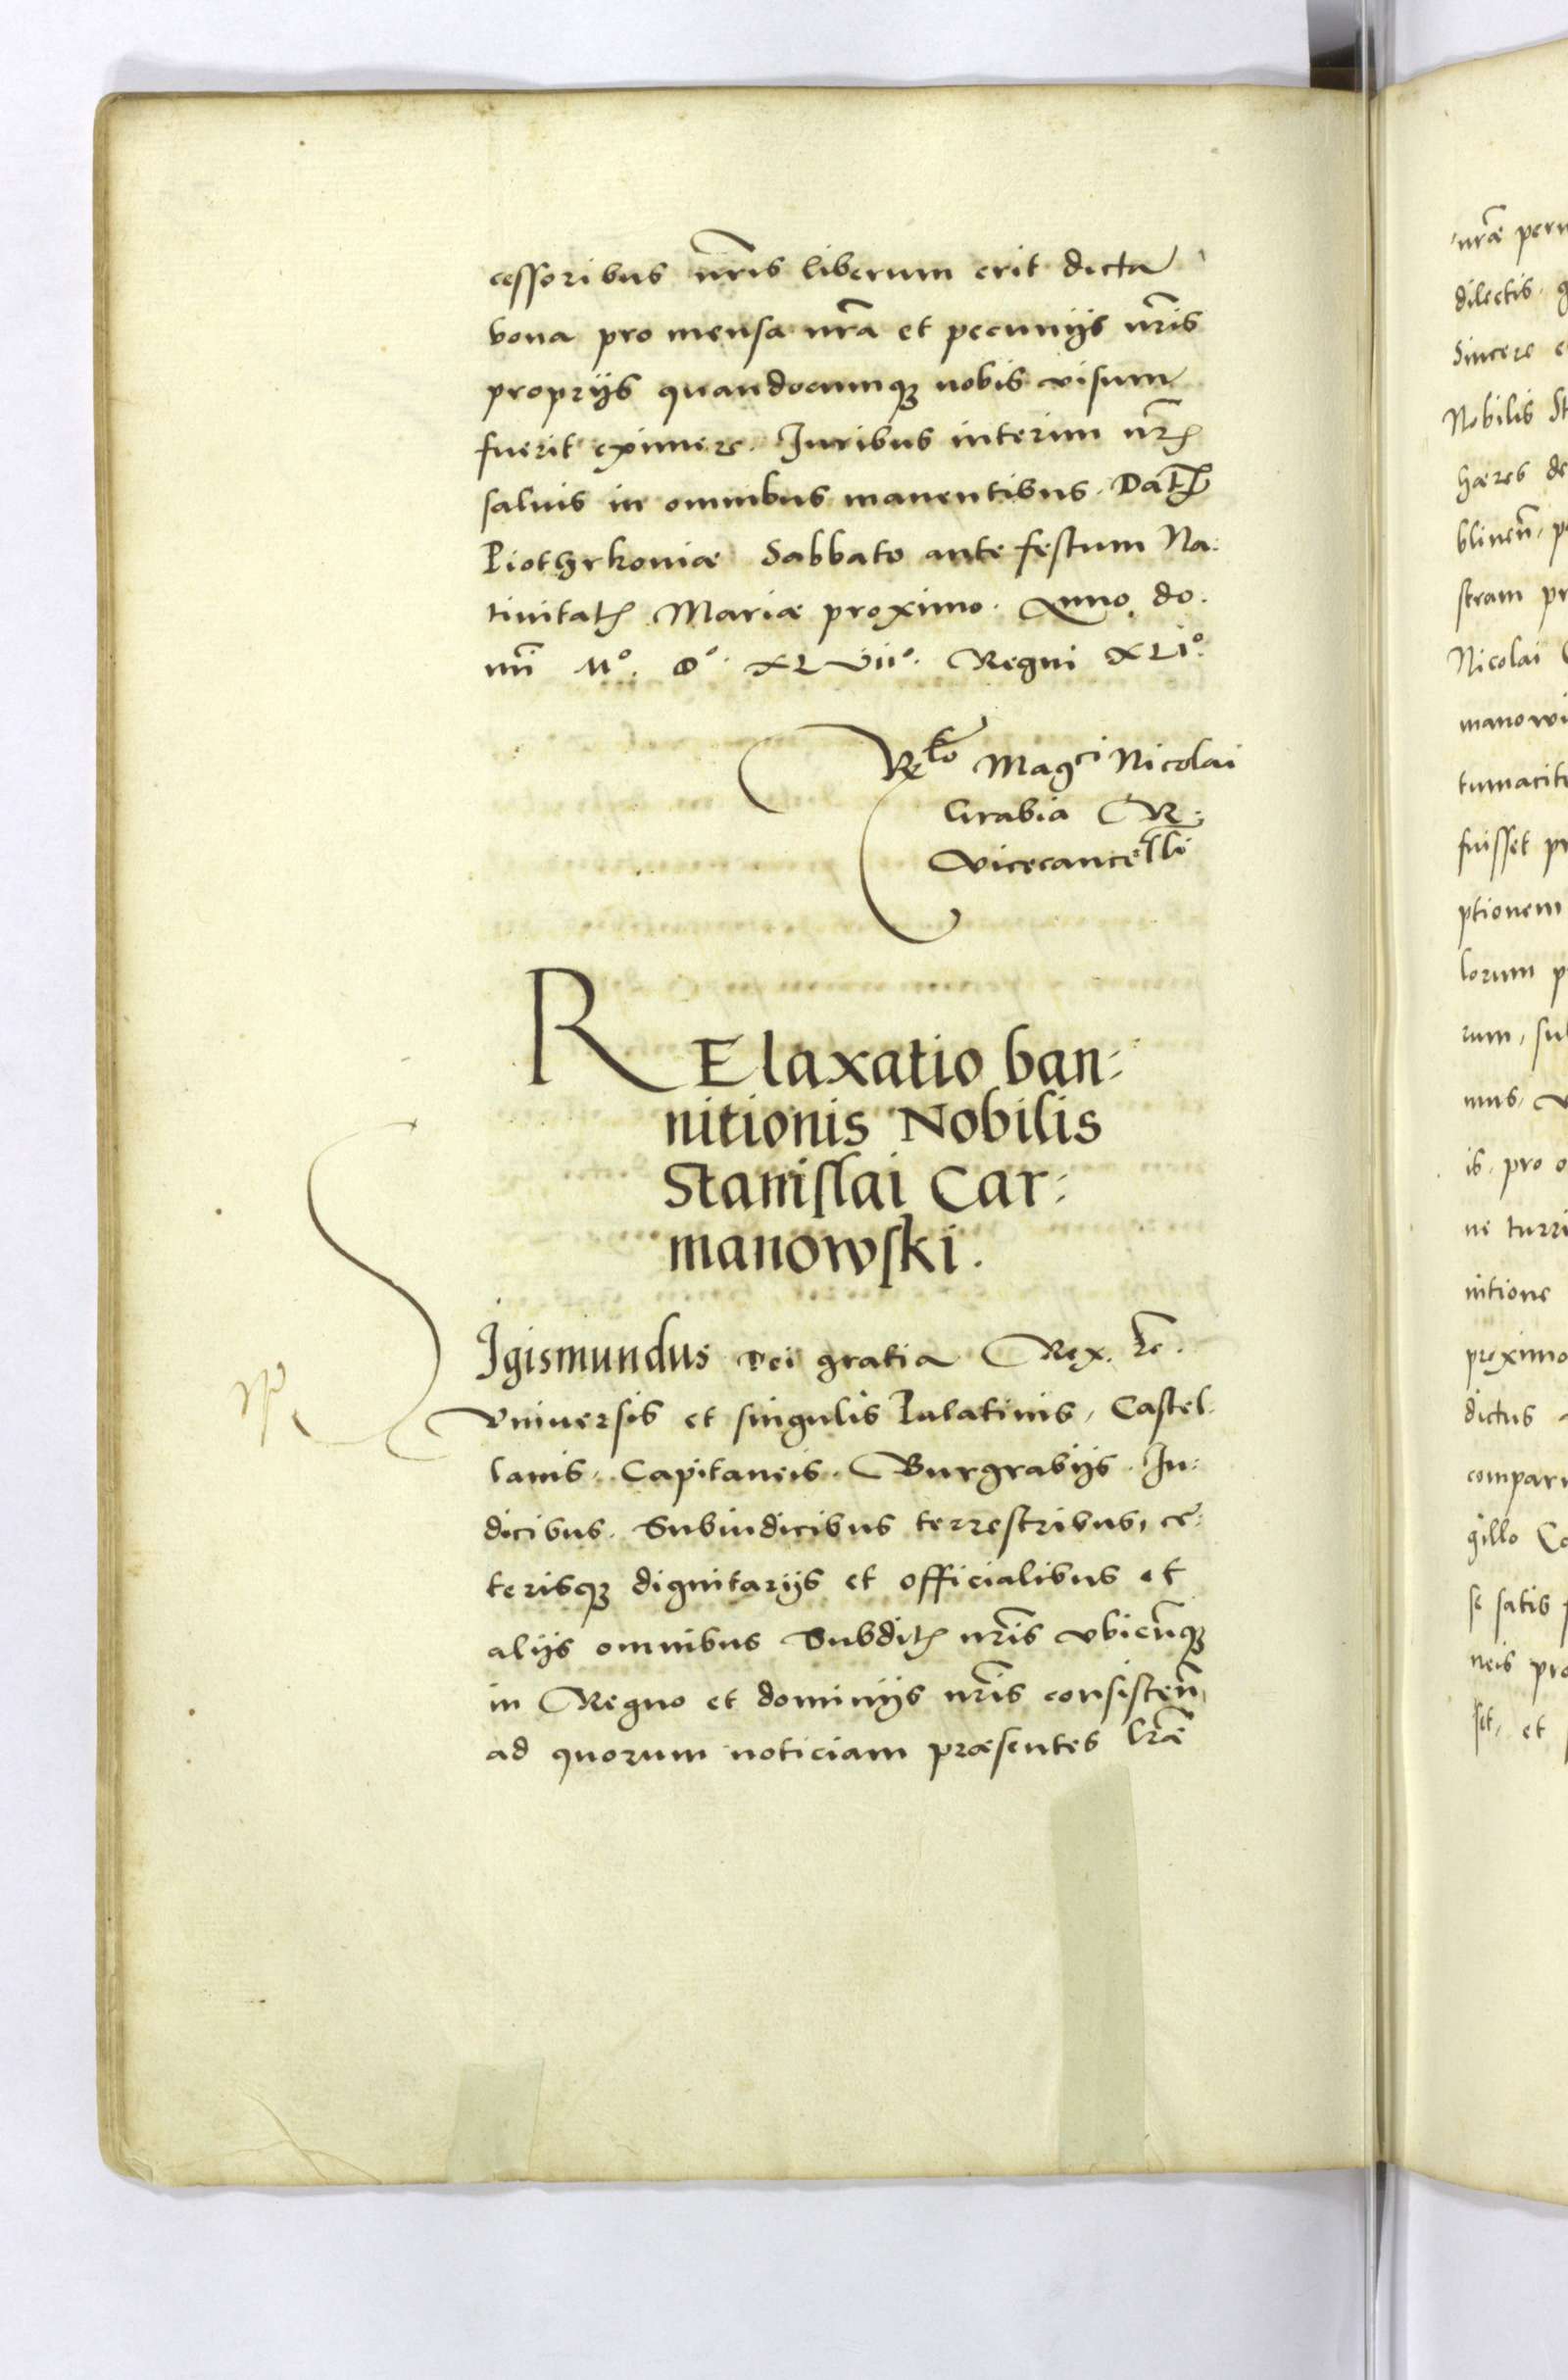 cessoribus nr̃is liberum erit dicta
bona pro mensa nr̃a et pecunijs nr̃is
proprijs quandocumqꝫ nobis visum
fuerit eximere. Iuribus interim nr̃is
saluis in omnibus manentibus. Dat̃
Piothrkoniæ Sabbato ante festum Na:
tiuitatis Mariæ proximo. Anno do.
mĩ Mº. Dº. XLviiº. Regni XLIº.
Relõ Magci Nicolai
Grabia R.
Vicecancelli
RElaxatio ban:
nitionis Nobilis
Stanislai Car:
manowski.
SIgismundus Dei gratia Rex. &c̃.
Vniuersis et singulis Palatinis, Castel
lanis, Capitaneis. Burgrabijs. Iu:
dicibus. Subiudicibus terrestribus, ce:
terisqꝫ dignitarijs et officialibus et
alijs omnibus Subditis nr̃is vbicũqꝫ
in Regno et dominijs nr̃is consisteñ,
ad quorum noticiam præsentes lr̃æ
nr̃æ
dilectis.
Sincere
Nobilis St
hæres de
blineñ,
stram
Nicolai
manowi
tumacit
fuisset
ptionem
lorum
rum,
mus,
is, pro
ne turri
nitione
proximo
dictus
comparu
gillo
se satis
neis pro
sit, et